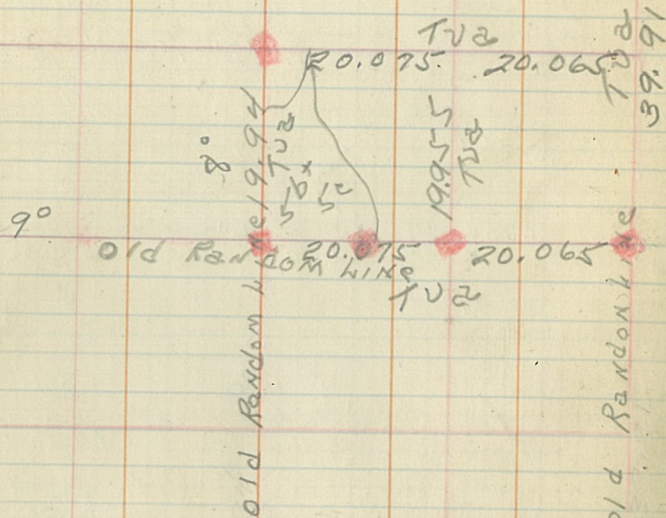 TVa
20.075. 20.065
TVa
39.91
8°
19.94
TVa
19.955
TVa
9°
Old Random Line
20.075
20.065
TVa
Old Random Line
Old Random Line